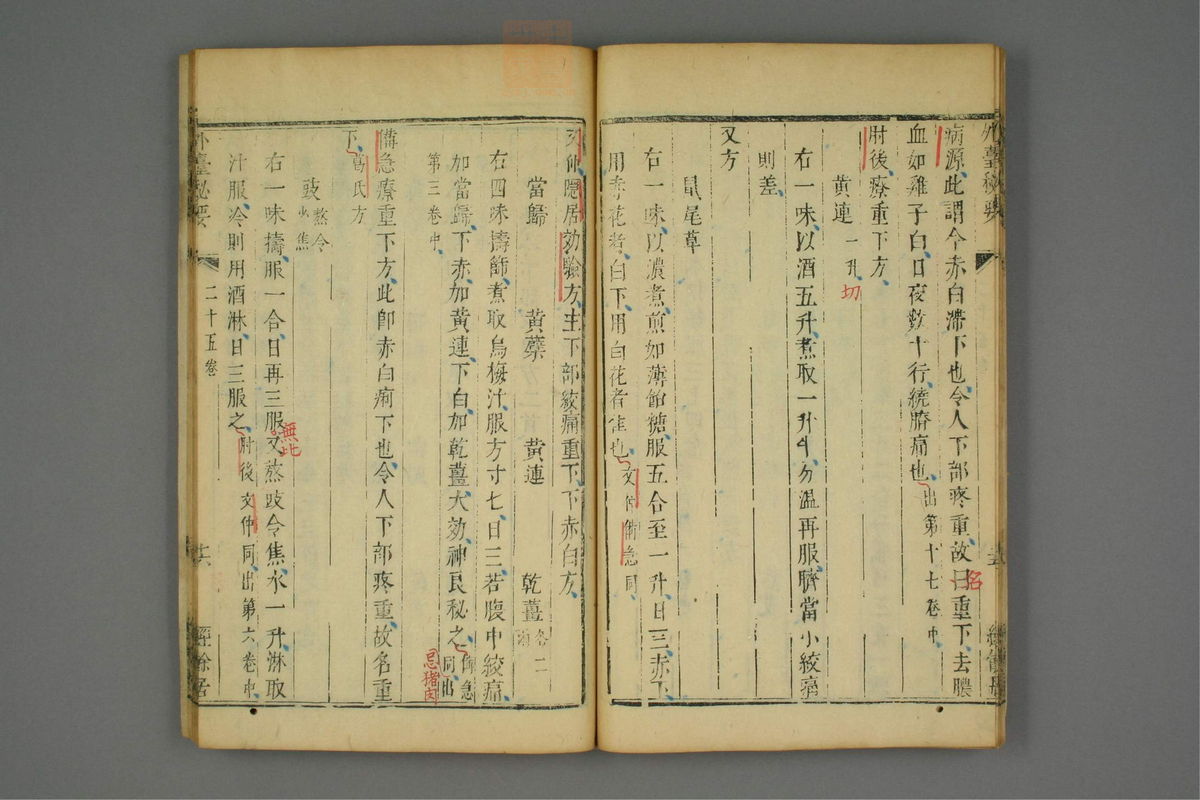 病源此謂今赤白滯下也令人下部疼重故曰重下去膿
名
血如雞子白日夜數十行繞臍痛也出第十七卷中
肘後療重下方
黃連一升
切
右一味以酒五升煮取一升半分溫再服臍當小絞痛
則差
又方
鼠尾草
右一味以濃煮煎如薄飴糖服五合至一升日三赤下
用赤花者白下用白花者佳也文仲備急同
文仲隱居効驗方主下部絞痛重下下赤白方
當歸 黃蘗 黃連 乾薑各二
右四味擣篩煮取烏梅汁服方寸七日三若腹中絞痛
加當歸下赤加黃連下白加乾薑大効神良秘之備急同出
忌猪肉
第三卷中
備急療重下方此即赤白痢下也令人下部疼重故名重
下葛氏方
豉熬令小焦
右一味擣服一合日再三服又熬豉令焦水一升淋取
無此
汁服冷則用酒淋日三服之肘後文仲同出第六卷中
外臺秘要 二十五卷 十六 經餘居